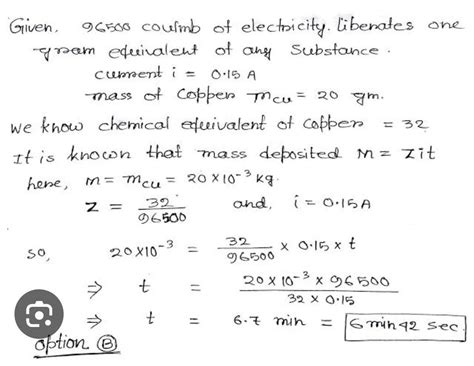 Given, 96500 coulmb of electricity. Liberates one
gram equivalent of any Substance.
current i = 0.15 A
mass of Copper m_cu = 20 gm.
we know chemical equivalent of Copper = 32
It is known that mass deposited M = Zit
here, m = m_cu = 20 × 10⁻³ kg.
Z = 32/96500 and, i = 0.15A
so, 20×10⁻³ = 32/96500 × 0.15 × t
⇒ t = 20 × 10⁻³ × 96500 / 32 × 0.15
⇒ t = 6.7 min = 6 min 42 sec
option Ⓑ